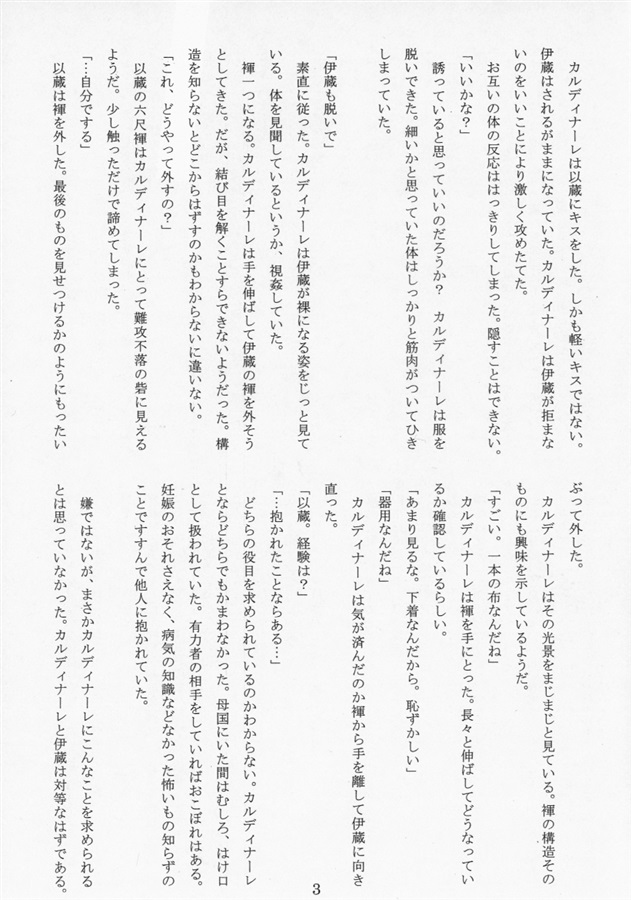 カルディナーレは以蔵にキスをした。しかも軽いキスではない。
伊蔵はされるがままになっていた。カルディナーレは伊蔵が拒まな
いのをいいことにより激しく攻めたてた。
お互いの体の反応ははっきりしてしまった。隠すことはできない。
「いいかな？」
誘っていると思っていいのだろうか？　カルディナーレは服を
脱いできた。細いかと思っていた体はしっかりと筋肉がついてひき
しまっていた。
「伊蔵も脱いで」
素直に従った。カルディナーレは伊蔵が裸になる姿をじっと見て
いる。体を見聞しているというか、視姦していた。
褌一つになる。カルディナーレは手を伸ばして伊蔵の褌を外そう
としてきた。だが、結び目を解くことすらできないようだった。構
造を知らないとどこからはずすのかもわからないに違いない。
「これ、どうやって外すの？」
以蔵の六尺褌はカルディナーレにとって難攻不落の砦に見える
ようだ。少し触っただけで諦めてしまった。
「…自分でする」
以蔵は褌を外した。最後のものを見せつけるかのようにもったい
ぶって外した。
カルディナーレはその光景をまじまじと見ている。褌の構造その
ものにも興味を示しているようだ。
「すごい。一本の布なんだね」
カルディナーレは褌を手にとった。長々と伸ばしてどうなってい
るか確認しているらしい。
「あまり見るな。下着なんだから。恥ずかしい」
「器用なんだね」
カルディナーレは気が済んだのか褌から手を離して伊蔵に向き
直った。
「以蔵。経験は？」
「…抱かれたことならある…」
どちらの役目を求められているのかわからない。カルディナーレ
とならどちらでもかまわなかった。母国にいた間はむしろ、はけ口
として扱われていた。有力者の相手をしていればおこぼれはある。
妊娠のおそれさえなく、病気の知識などなかった怖いもの知らずの
ことですすんで他人に抱かれていた。
嫌ではないが、まさかカルディナーレにこんなことを求められる
とは思っていなかった。カルディナーレと伊蔵は対等なはずである。
3